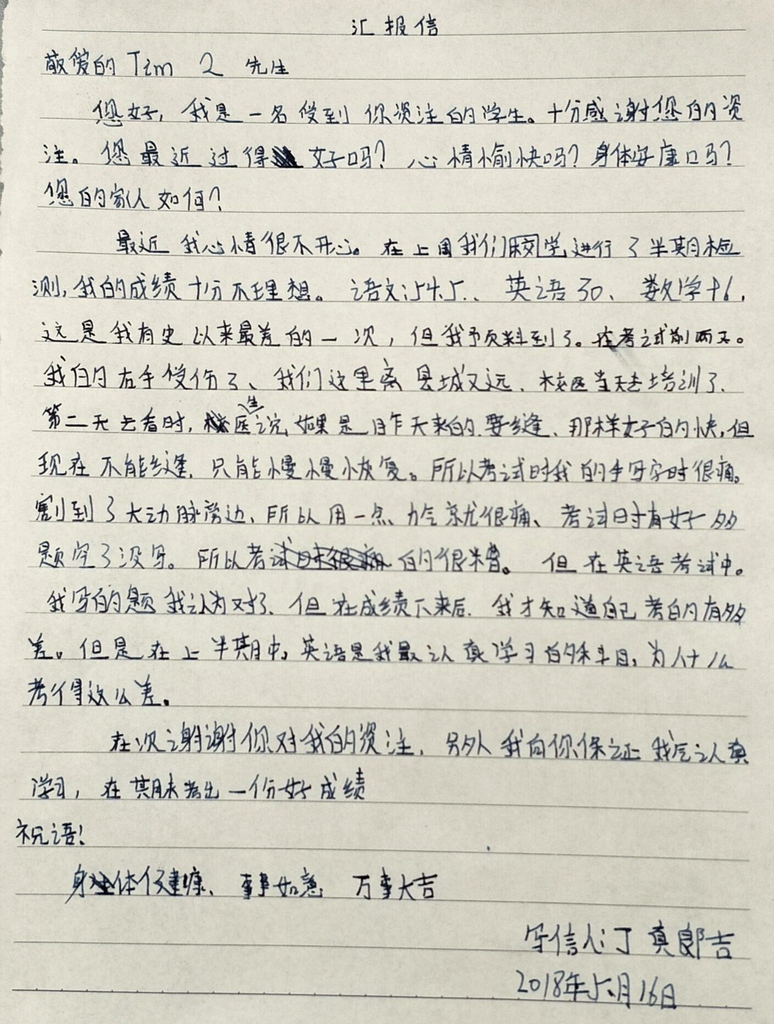 汇报信
敬爱的 Tim 2 先生
您好，我是一名受到你资注的学生。十分感谢您的资
注。您最近过得好吗？心情愉快吗？身体安康吗？
您的家人如何？
最近我心情很不开心。在上周我们校学进行了半期检
测，我的成绩十分不理想。语文:54.5、英语30、数学16，
这是我有史以来最差的一次，但我预料到了。在考试前两天。
我的右手受伤了、我们这里离县城又远、校医当天去培训了、
第二天去看时，医生说，如果是昨天来的要缝、那样好的快，但
现在不能缝，只能慢慢小恢复。所以考试时我的手写字时很痛。
割到了大动脉旁边、所以用一点力气就很痛、考试时有好多
题空了没写。所以考试的很糟。但在英语考试中。
我写的题我认为对了、但在成绩下来后，我才知道自己考的有多
差。但是在上半期中，英语是我最认真学习的科目，为什么
考得这么差。
在次谢谢你对我的资注，另外我向你保证我会认真
学习，在期末考出一份好成绩
祝语！
身体健康、事事如意 万事大吉
写信人:丁真郎吉
2018年5月16日